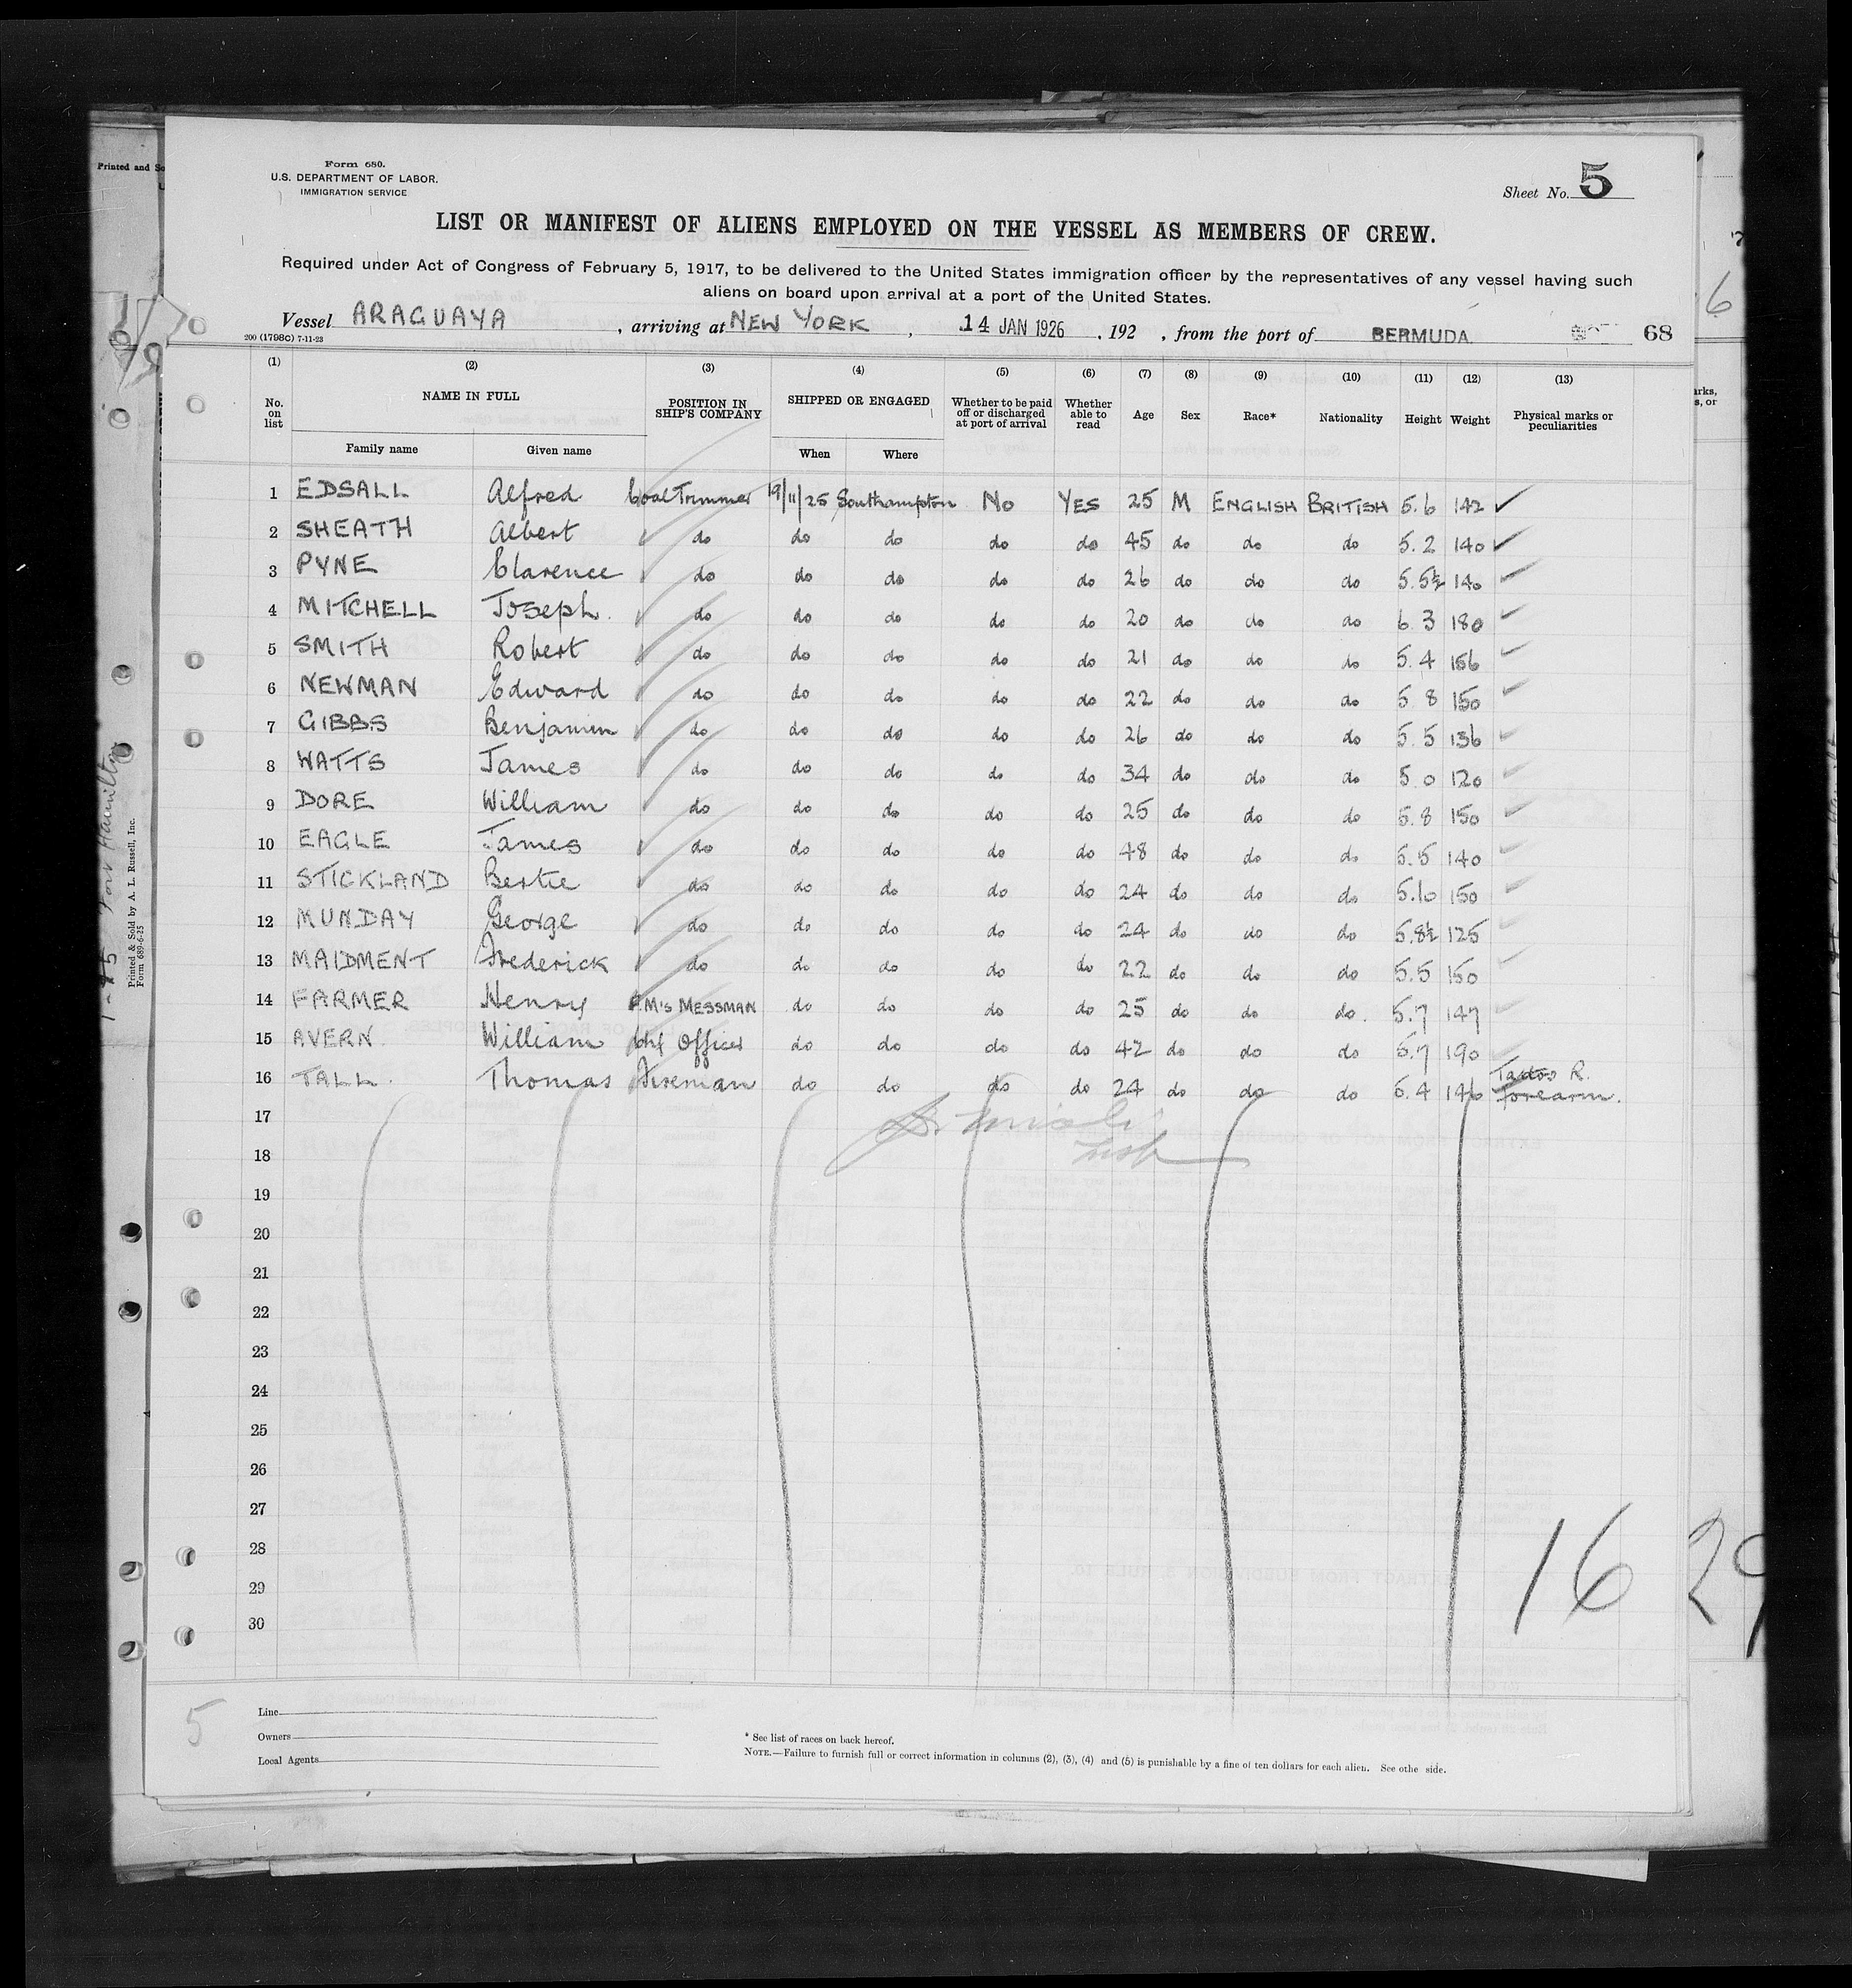 Form 680.
U.S. DEPARTMENT OF LABOR.
IMMIGRATION SERVICE
Sheet No. 5
LIST OR MANIFEST OF ALIENS EMPLOYED ON THE VESSEL AS MEMBERS OF CREW.
Required under Act of Congress of February 5, 1917, to be delivered to the United States immigration officer by the representatives of any vessel having such
aliens on board upon arrival at a port of the United States.
Vessel ARAGUAYA, arriving at NEW YORK, 14 JAN 1926, 192 , from the port of BERMUDA 68
200 (1798C) 7-11-23
(1) (2) (3) (4) (5) (6) (7) (8) (9) (10) (11) (12) (13)
No. on list NAME IN FULL Family name Given name POSITION IN SHIP'S COMPANY SHIPPED OR ENGAGED When Where Whether to be paid off or discharged at port of arrival Whether able to read Age Sex Race* Nationality Height Weight Physical marks or peculiarities
1 EDSALL Alfred Coal Trimmer 19/11/25 Southampton No YES 25 M ENGLISH BRITISH 5.6 142 ✓
2 SHEATH Albert do do do do do 45 do do do 5.2 140 ✓
3 PYNE Clarence do do do do do 26 do do do 5.5½ 140 ✓
4 MITCHELL Joseph. do do do do do 20 do do do 6.3 180 ✓
5 SMITH Robert do do do do do 21 do do do 5.4 156 ✓
6 NEWMAN Edward do do do do do 22 do do do 5 8 150 ✓
7 GIBBS Benjamin do do do do do 26 do do do 5.5 136 ✓
8 WATTS James do do do do do 34 do do do 5.0 120 ✓
9 DORE William do do do do do 25 do do do 5.8 150 ✓
10 EAGLE James do do do do do 48 do do do 5.5 140 ✓
11 STICKLAND Bertie do do do do do 24 do do do 5.10 150 ✓
12 MUNDAY George do do do do do 24 do do do 5.8½ 125 ✓
13 MAIDMENT Frederick do do do do do 22 do do do 5.5 150 ✓
14 FARMER Henry F.M's MESSMAN do do do do 25 do do do. 5.7 147 ✓
15 AVERN William Chf Officer do do do do 42 do do do 5.7 190 ✓
16 TALL. Thomas Fireman do do do do 24 do do do 5.4 146 Tattoo R. forearm.
17
18
19
20
21
22
23
24
25
26
27
28
29
30
16
29
5
Line
Owners
Local Agents
* See list of races on back hereof.
NOTE.—Failure to furnish full or correct information in columns (2), (3), (4) and (5) is punishable by a fine of ten dollars for each alien. See othe side.
Printed & Sold by A. L. Russell, Inc.
Form 689-6-25
Printed and So